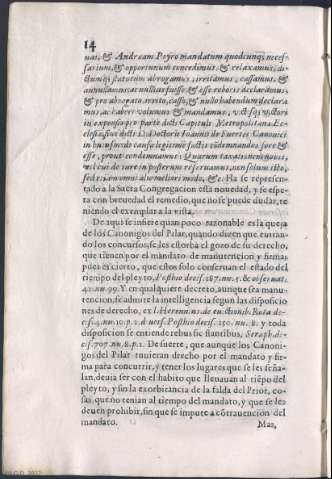 14
nat, & Andream Peyro mandatum quodcunq; neces-
sarium, & opportunum concedimus, & relaxamus, di-
ctumq; statutum abrogamus, irritamus, cassamus, &
annullamus: ac nullius fuisse, & esse roboris declaramus,
& pro abrogato, irrito, casso, & nullo habendum declara
mus, ac haberi volumus & mandamus,
in expensis pro parte dicti Capituli Metropolitanæ Ec-
clesiæ, sive dicti D. Doctoris Ioannis de Canonici
in huiusmodi causa legitime factis condemnandos fore &
esse, prout condemnamus: Quarum taxationem nobis,
vel cui de iure in posterum reservamus, non solum isto,
sed & omni meliori modo, &c. Ha se represen-
tado a la Sacra Congregacion esta nouedad, y se espe-
ra con breuedad el remedio, que no se puede dudar, te
niendo el exemplar a la vista.
De aqui se infiere quan poco razonable es la quexa
de los Canonigos del Pilar, quando dizen que entran-
do los concursos, se les estorba el gozo de su derecho,
que tienen por el mandato de manutencion y firma:
pues es cierto, que estos solo conseruan el estado del
tiempo del pleyto, Posthio decis. 287. nu. 1. & obseruat.
42. nu. 99. Y en qualquiere decreto, aunque sea manu-
tencion, se admite la inteligencia segun las disposicio
nes de derecho, ex l. Herennius de euictionib. Rota de-
cis. 4. nu. 10. p. 2. diuers. Posthio decis. 250. nu. 8. y toda
disposicion se entiende rebus sic stantibus, Seraph. de-
cis. 707. nu. 8. p. 1. De suerte, que aunque los Canoni-
gos del Pilar tuuieran drecho por el mandato y fir-
ma para concurrir, y tener los lugares que se les seña-
lan, deuia ser con el habito que lleuauan al tiẽpo del
pleyto, y sin la exorbitancia de la falda del Prior, co-
sas, que no tenian al tiempo del mandato, y que se le-
deuen prohibir, sin que se impute a cõtrauencion del
mandato.
Mas,